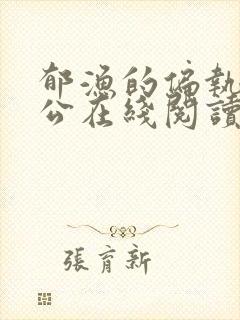 郁漁的偏執
公在綫閱讀
張育新